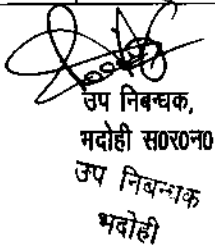 उप निबन्धक,
भदोही स०र०न०
उप निबन्धक
भदोही